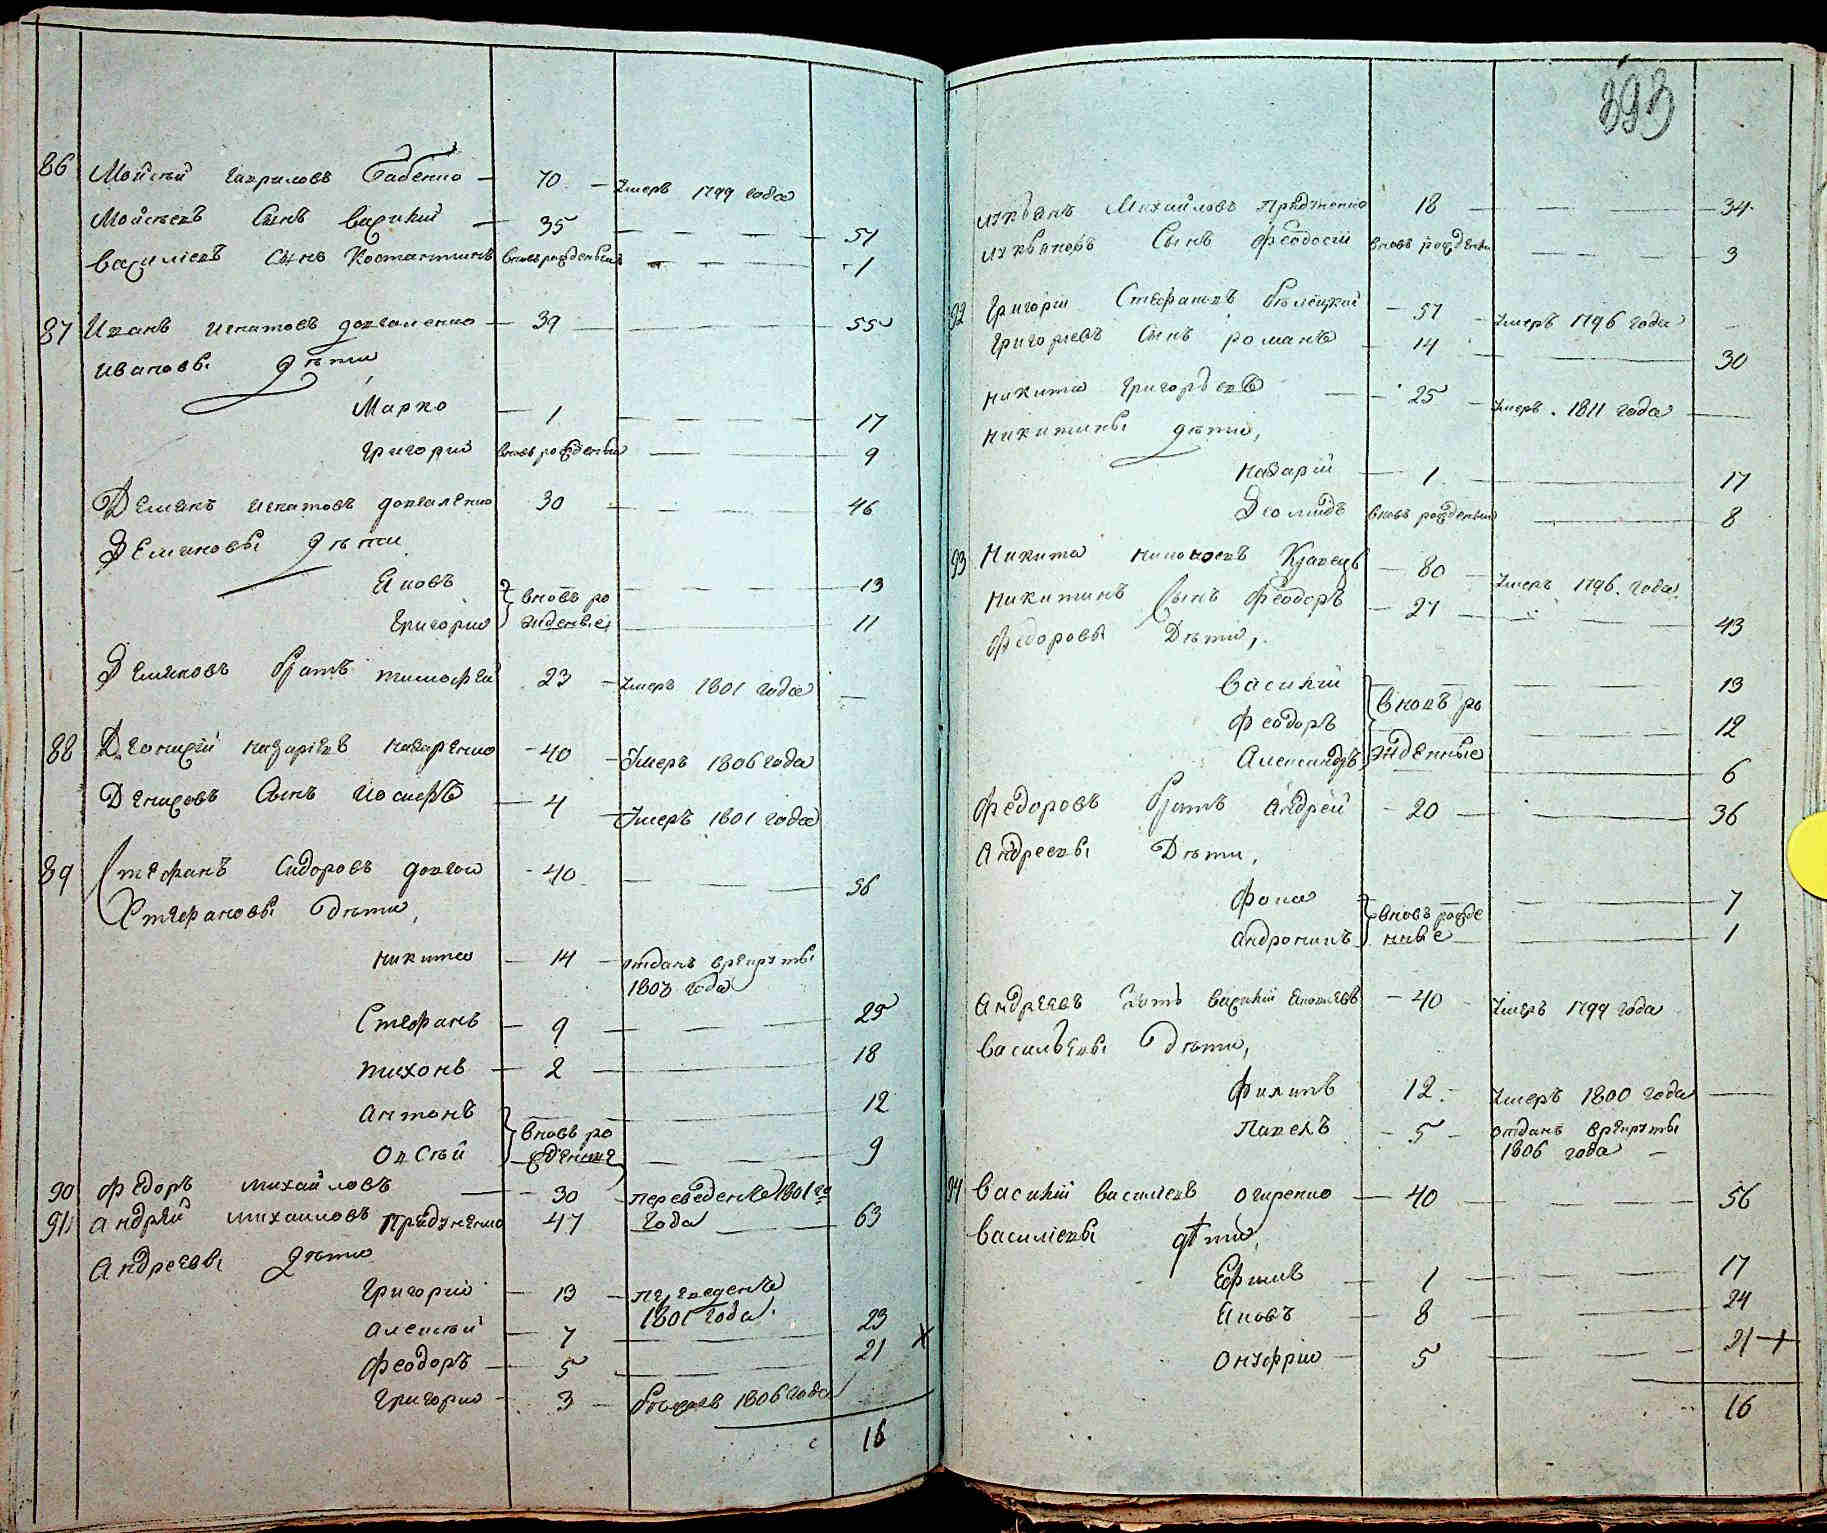 86 Мойсей Гавриловъ Бабенко — 70 — Умеръ 1799 года
Мойсеевъ Сынъ Василий — 35 — 51
Василиевъ Сынъ Костантинъ вновь рожденный — 1
87 Иванъ Игнатовъ довгаленко — 39 — 55
Ивановы дѣти
Марко — 1 — 17
Григорий вновь рожденный — 9
Демянъ Игнатовъ довгаленко 30 — 46
Демяновы дѣти
Яковъ вновь ро — 13
Григорий жденые 11
Демяновъ братъ тимофей 23 — Умеръ 1801 года —
88 Деонисий назариевъ назаренко — 40 — Умеръ 1806 года
Денисовъ Сынъ Иосифъ — 4 — Умеръ 1801 года
89 Стефанъ Сидоровъ довгой — 40 — 56
Стефановы дѣти,
Никита — 14 — отданъ врекруты
1803 года
Стефанъ — 9 — 25
тихонъ — 2 — 18
антонъ — 12
вновь ро
Овсѣй жденные — 9
90 Федоръ михайловъ — 30 — переведенъ 1801 го
91 андрей михайловъ Придченко 47 года — 63
Андреевы дѣти
Григорий — 13 — переведенъ
1801 года.
алексѣй — 7 — 23
феодоръ — 5 — 21
Григорий — 3 — 1806 года
16
393
лукьянъ Михайловъ Придченко 18 — 34
лукьяновъ Сынъ феодосий вновь рожденный — 3
92 Григорий Стефановъ бѣлецкий — 51 — Умеръ 1796 года —
Григориевъ Сынъ романъ — 14 — 30
никита Григорьевъ — 25 — Умеръ 1811 года —
никитины дѣти,
назарий — 1 — 17
Диомидъ вновь рожденный — 8
93 Никита Кравецъ — 80 — Умеръ 1796 года
никитинъ Сынъ Феодоръ — 27 — 43
Федоровы Дѣти,
василий — 13
вновь ро
феодоръ — 12
Александръ жденные — 6
Федоровъ братъ андрей — 20 — 36
Андреевы Дѣти,
Фома вновь рожде — 7
андроникъ ные — 1
Андреевъ зять василий — 40 — Умеръ 1799 года
васильевы дѣти,
Филипъ 12 — Умеръ 1800 года —
павелъ — 5 — отданъ врекруты
1806 года —
94 василий василиевъ огиренко — 40 — 56
василиевы дѣти
Ефимъ — 1 — 17
Яковъ — 8 — 24
Онуфрий — 5 — 21
16